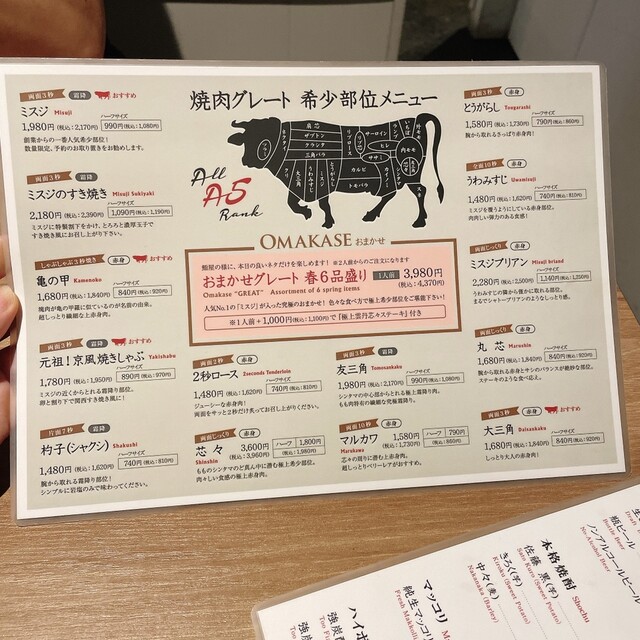 焼肉グレート 希少部位メニュー
All
A5
Rank
両面3秒
霜降
おすすめ
ミスジ Misuji
ハーフサイズ
1,980円(税込:2,170円)
990円(税込:1,080円)
創業からの一番人気希少部位!
数量限定、予約のお取り置きをお勧めします。
両面3秒
霜降
ミスジのすき焼き Misuji Sukiyaki
ハーフサイズ
2,180円(税込:2,390円)
1,090円(税込:1,190円)
ミスジに特製割下をかけ、とろっと濃厚玉子で
すき焼き風にお召し上がり下さい。
しゃぶしゃぶ3秒焼き
赤身
亀の甲 Kamenoko
ハーフサイズ
1,680円(税込:1,840円)
840円(税込:920円)
焼肉が亀の甲羅に似ているのが名前の由来。
超しっとり繊細な上赤身肉。
両面3秒
霜降
元祖!京風焼きしゃぶ Yakishabu
ハーフサイズ
1,780円(税込:1,950円)
890円(税込:970円)
ミスジの近くからとれる霜降り部位。
卵と割り下で関西すき焼き風に!
片面7秒
霜降
杓子(シャクシ) Shakushi
ハーフサイズ
1,480円(税込:1,620円)
740円(税込:810円)
腕から取れる霜降り部位!
シンプルに岩塩のみで味わってください。
OMAKASE おまかせ
鮨屋の様に、本日の良いネタだけを楽しめます! ※2人前からのご注文になります
おまかせグレート 春6品盛り
1人前
3,980円
(税込:4,370円)
Omakase "GREAT" Assortment of 6 spring items
人気No.1の「ミスジ」が入った究極のおまかせ! 色々な食べ方で極上希少部位をご堪能下さい!
※1人前+1,000円(税込:1,100円)で「極上雲丹芯々ステーキ」付き
両面2秒
赤身
2秒ロース 2seconds Tenderloin
ハーフサイズ
1,480円(税込:1,620円)
740円(税込:810円)
ジューシーな赤身肉!
両面をサッと2秒だけ炙ってお召し上がりください。
両面じっくり
赤身
芯々
Shinshin
3,600円
(税込:3,960円)
ハーフ
1,800円
(税込:1,980円)
もものシンタマのど真ん中に潜む極上希少部位。
肉々しい食感の極上赤身。
両面3秒
霜降
友三角 Tomosankaku
ハーフサイズ
1,980円(税込:2,170円)
990円(税込:1,080円)
シンタマの中心部からとれる極上霜降り肉。
もも肉特有の繊細な究極霜降り。
両面10秒
赤身
マルカワ
Marukawa
1,580円
(税込:1,730円)
ハーフ
790円
(税込:860円)
芯々の周りに潜む上赤身肉。
超しっとりベリーレアがおすすめ。
両面3秒
赤身
おすすめ
とうがらし Tougarashi
ハーフサイズ
1,580円(税込:1,730円)
790円(税込:860円)
腕から取れるさっぱり赤身肉!
全面10秒
赤身
うわみすじ Uwamisuji
ハーフサイズ
1,480円(税込:1,620円)
740円(税込:810円)
ミスジを覆うようにしている赤身部位。
肉肉しい弾力のある食感!
両面じっくり
赤身
ミスジブリアン Misuji briand
ハーフサイズ
2,280円(税込:2,500円)
1,140円(税込:1,250円)
うわみすじの隣から僅かに取れる部位。
まるでシャトーブリアンのようなしっとり感。
両面じっくり
赤身
丸芯 Marushin
ハーフサイズ
1,680円(税込:1,840円)
840円(税込:920円)
腕から取れる赤身とサシのバランスが絶妙な部位。
ステーキのような食べ応え。
両面5秒
赤身
おすすめ
大三角 Daisankaku
ハーフサイズ
1,680円(税込:1,840円)
840円(税込:920円)
しっとり大人の赤身肉!
瓶ビール
Bottle Beer
ノンアルコールビール
No-Alcohol Beer
本格焼酎 Shochu
佐藤 黒(芋)
Sato Kuro (Sweet Potato)
きろく(芋)
Kiroku (Sweet Potato)
中々(麦)
Nakanaka (Barley)
マッコリ
純生マッコリ
Fresh Makkolli